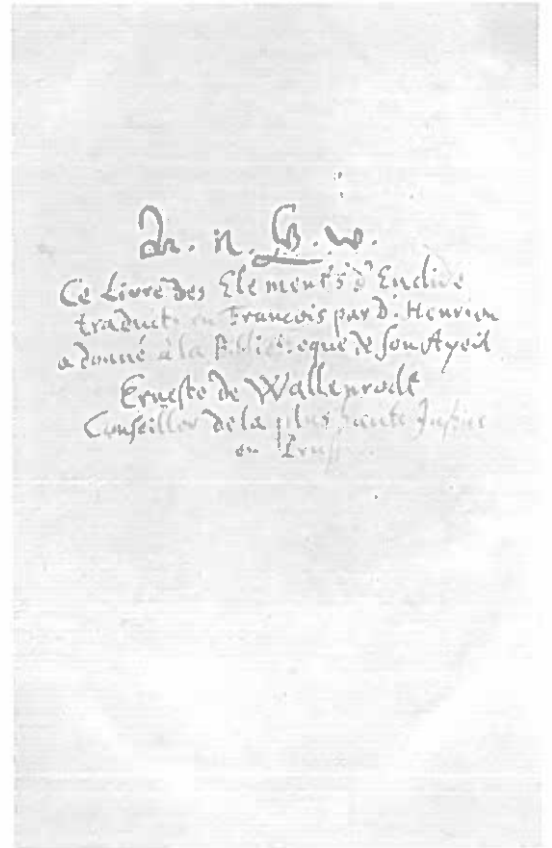 n. B. w.
Ce Livre des Elements d'Euclide
traduit en Francois par D. Henrion
a donné à la Biblioteque de son Ayeil
Erneste de Wallenrodt
Conseiller de la plus haute Justice
en